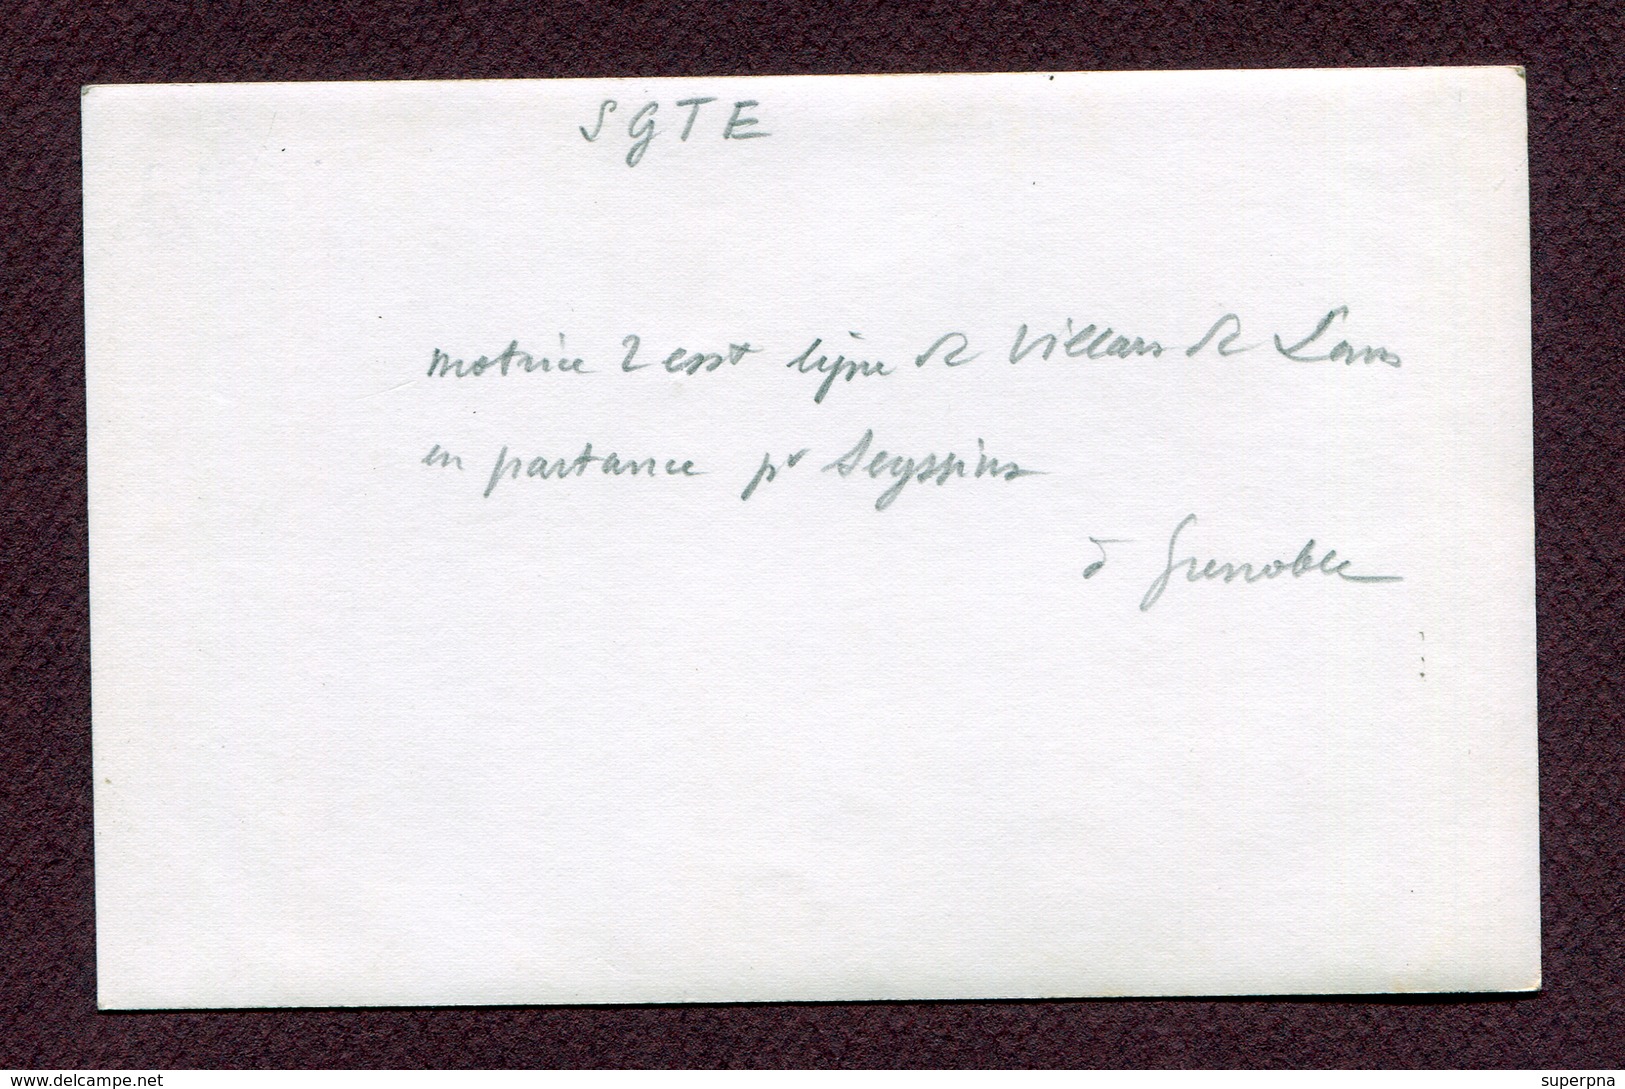 SGTE
motrice 2 esst ligne de Villars de Lans
en partance pr Seyssins
à Grenoble
www.delcampe.net
superpna